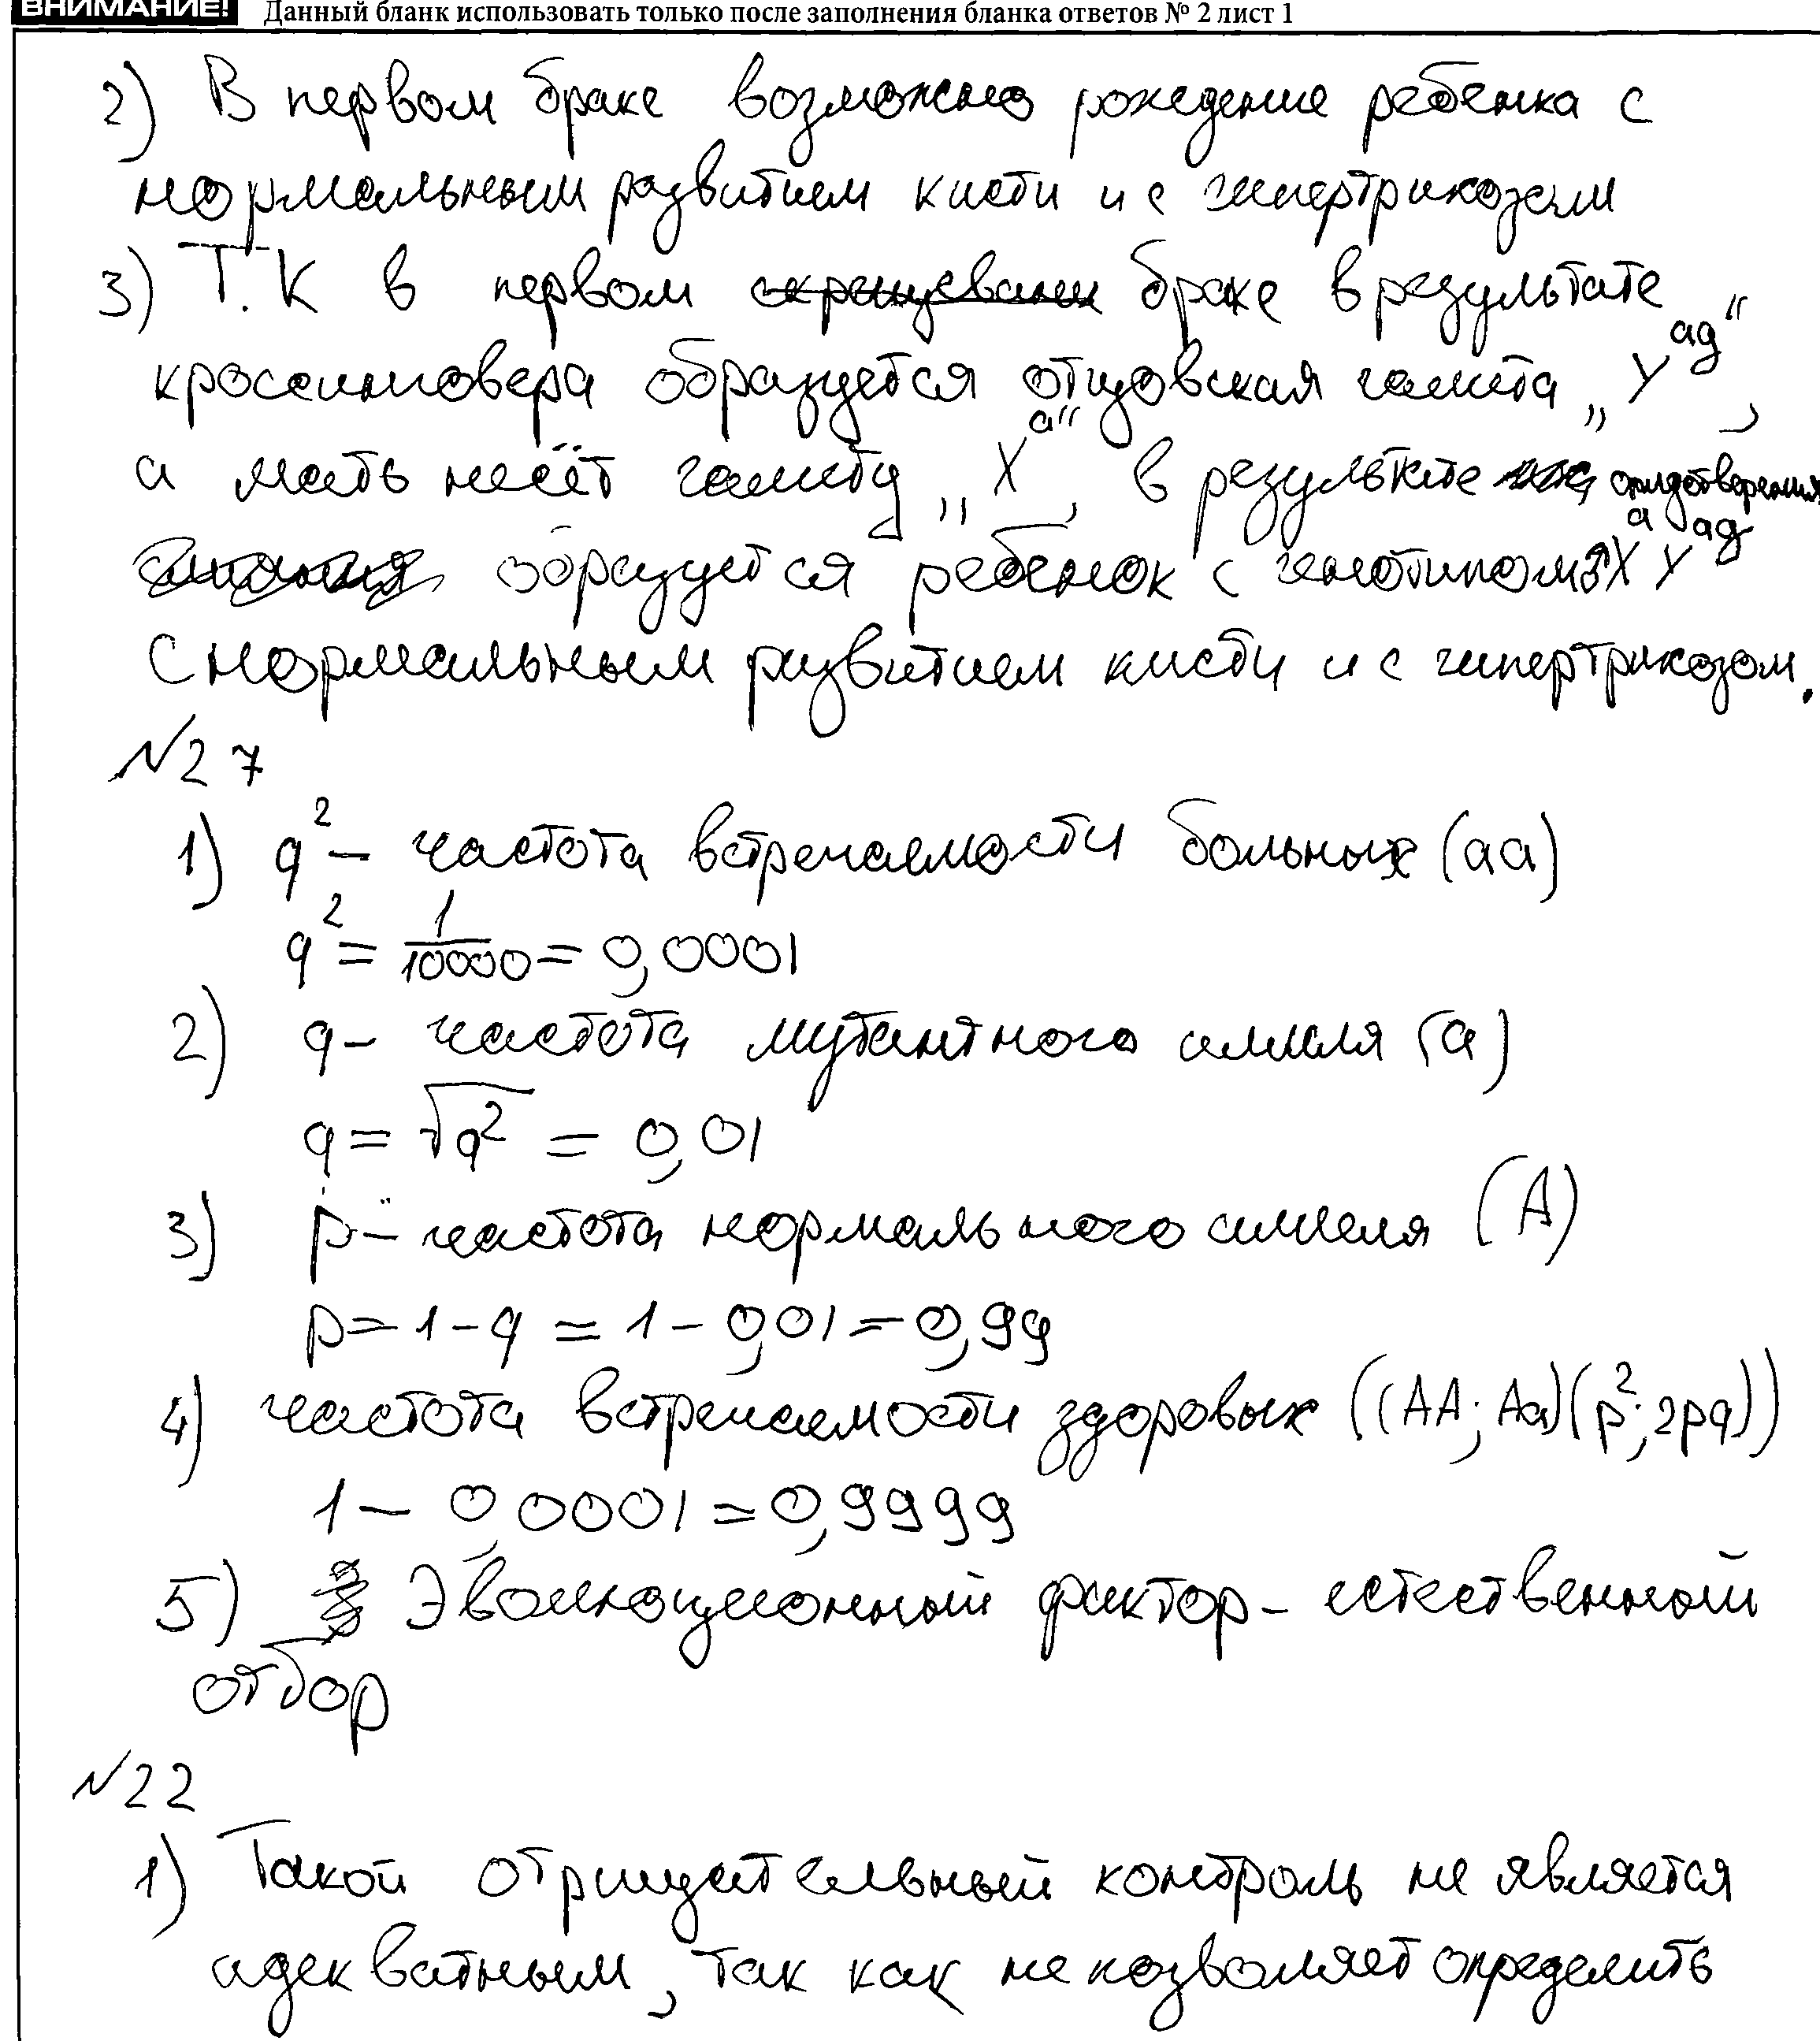 ВНИМАНИЕ! Данный бланк использовать только после заполнения бланка ответов № 2 лист 1
2) В первом браке возможно рождение ребенка с
нормальным развитием кисти и с гипертрихозом
3) Т.К в первом скрещивании браке в результате
кроссинговера образуется отцовская гамета „Y^ad“,
а мать несёт гамету „X^a“, в результате оплодотворения
образуется ребёнок с генотипом ♂X^aY^ad
с нормальным развитием кисти и с гипертрихозом.
№27
1) q² – частота встречаемости больных (aa)
q² = 1/10000 = 0,0001
2) q – частота мутантного аллеля (a)
q = √q² = 0,01
3) p – частота нормального аллеля (A)
p = 1 – q = 1 – 0,01 = 0,99
4) частота встречаемости здоровых ((AA; Aa)(p²; 2pq))
1 – 0,0001 = 0,9999
5) Эволюционный фактор – естественный
отбор
№22
1) Такой отрицательный контроль не является
адекватным, так как не позволяет определить